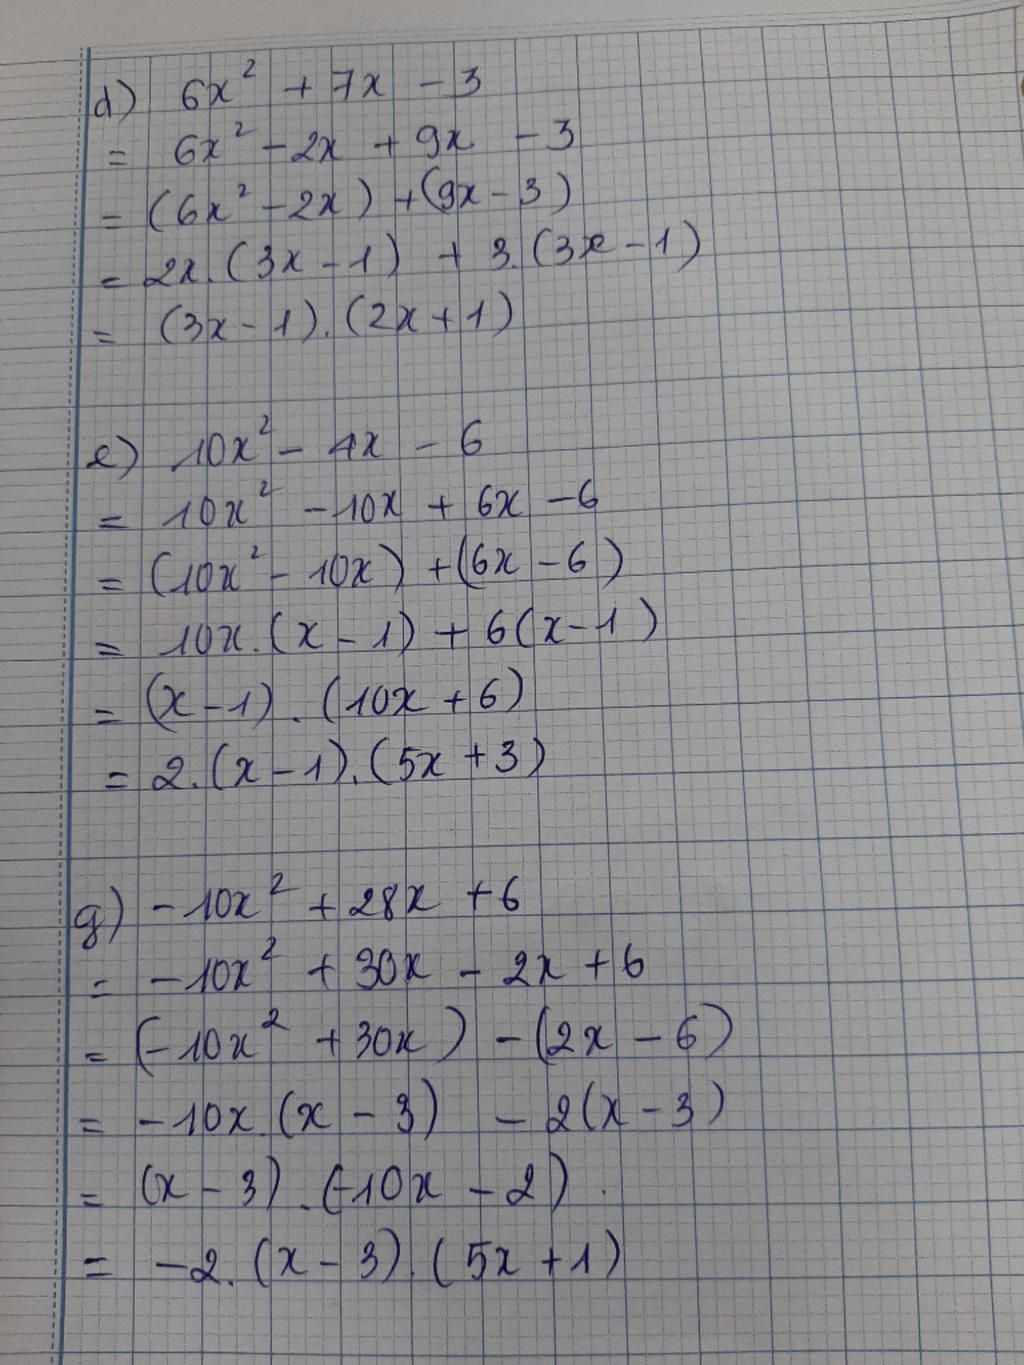 d) 6x² + 7x - 3
= 6x² - 2x + 9x - 3
= (6x² - 2x) + (9x - 3)
= 2x.(3x - 1) + 3.(3x - 1)
= (3x - 1).(2x + 1)
e) 10x² - 4x - 6
= 10x² - 10x + 6x - 6
= (10x² - 10x) + (6x - 6)
= 10x.(x - 1) + 6(x - 1)
= (x - 1).(10x + 6)
= 2.(x - 1).(5x + 3)
g) -10x² + 28x + 6
= -10x² + 30x - 2x + 6
= (-10x² + 30x) - (2x - 6)
= -10x.(x - 3) - 2(x - 3)
= (x - 3).(-10x - 2).
= -2.(x - 3).(5x + 1)